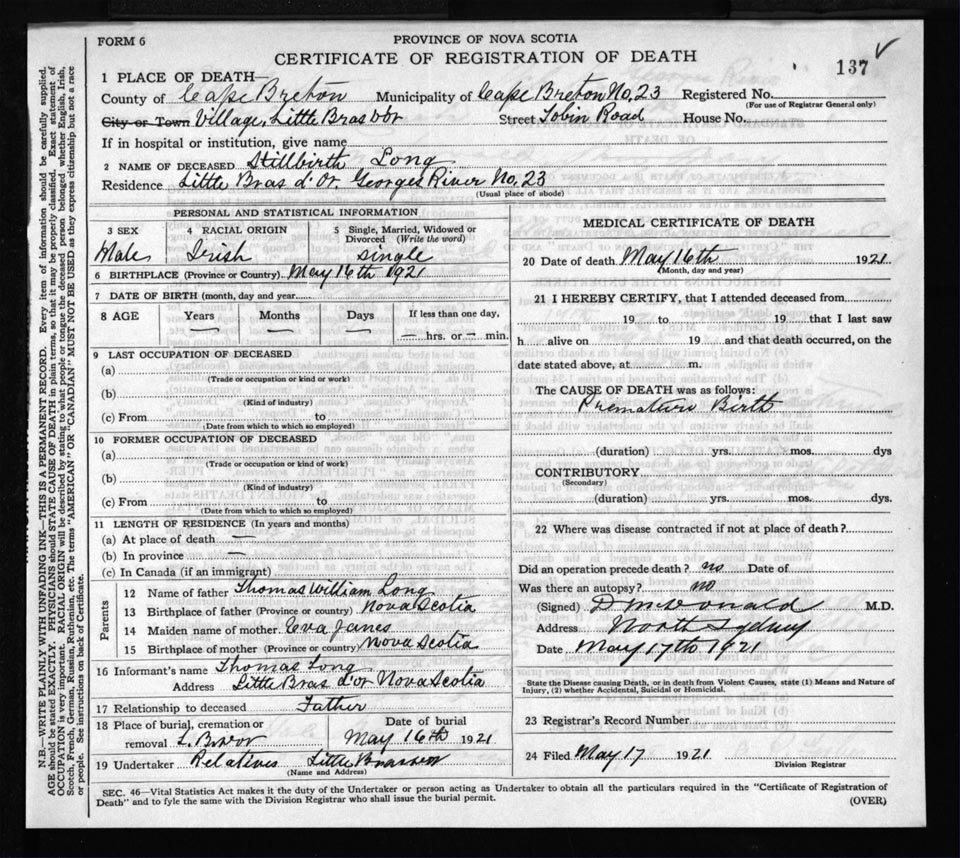 FORM 6
PROVINCE OF NOVA SCOTIA
CERTIFICATE OF REGISTRATION OF DEATH
137
1 PLACE OF DEATH—
County of Cape Breton Municipality of Cape Breton No, 23 Registered No.
(For use of Registrar General only)
City or Town Village, Little Bras D'Or Street Tobin Road House No.
If in hospital or institution, give name
2 NAME OF DECEASED Stillbirth Long
Residence Little Bras d'Or, Georges River No, 23
(Usual place of abode)
PERSONAL AND STATISTICAL INFORMATION
3 SEX 4 RACIAL ORIGIN 5 Single, Married, Widowed or Divorced (Write the word)
Male Irish single
6 BIRTHPLACE (Province or Country) May 16th 1921
7 DATE OF BIRTH (month, day and year
8 AGE Years Months Days If less than one day,
— — — — hrs. or — min.
9 LAST OCCUPATION OF DECEASED
(a)
(Trade or occupation or kind or work)
(b)
(Kind of industry)
(c) From to
(Date from which to which so employed)
10 FORMER OCCUPATION OF DECEASED
(a)
(Trade or occupation or kind of work)
(b)
(Kind of industry)
(c) From to
(Date from which to which so employed)
11 LENGTH OF RESIDENCE (In years and months)
(a) At place of death —
(b) In province —
(c) In Canada (if an immigrant)
Parents
12 Name of father Thomas William Long
13 Birthplace of father (Province or country) Nova Scotia
14 Maiden name of mother Eva Janes
15 Birthplace of mother (Province or country) Nova Scotia
16 Informant's name Thomas Long
Address Little Bras d'or Nova Scotia
17 Relationship to deceased Father
18 Place of burial, cremation or removal L. Bras
Date of burial
May 16th 1921
19 Undertaker Relatives Little Bras
(Name and Address)
MEDICAL CERTIFICATE OF DEATH
20 Date of death May 16th 1921
(Month, day and year)
21 I HEREBY CERTIFY, that I attended deceased from
19 to 19 that I last saw
h alive on 19 and that death occurred, on the
date stated above, at m.
The CAUSE OF DEATH was as follows:
Premature Birth
(duration) yrs. mos. dys
CONTRIBUTORY
(Secondary)
(duration) yrs. mos. dys.
22 Where was disease contracted if not at place of death?
Did an operation precede death? no Date of
Was there an autopsy? no
(Signed) D McDonald M.D.
Address North Sydney
Date May 17th 1921
State the Disease causing Death, or in death from Violent Causes, state (1) Means and Nature of
Injury, (2) whether Accidental, Suicidal or Homicidal.
23 Registrar's Record Number
24 Filed May 17 1921
Division Registrar
SEC. 46—Vital Statistics Act makes it the duty of the Undertaker or person acting as Undertaker to obtain all the particulars required in the "Certificate of Registration of
Death" and to fyle the same with the Division Registrar who shall issue the burial permit.
(OVER)
N.B.—WRITE PLAINLY WITH UNFADING INK.—THIS IS A PERMANENT RECORD. Every item of information should be carefully supplied.
AGE should be stated EXACTLY. PHYSICIANS should STATE CAUSE OF DEATH in plain terms, so that it may be properly classified. Exact statement of
OCCUPATION is very important. RACIAL ORIGIN will be described by stating to what people or tongue the deceased person belonged, whether English, Irish,
Scotch, French, German, Russian, Ruthenian, etc. The terms "AMERICAN" OR "CANADIAN" MUST NOT BE USED as they express citizenship but not a race
or people. See instructions on back of Certificate.